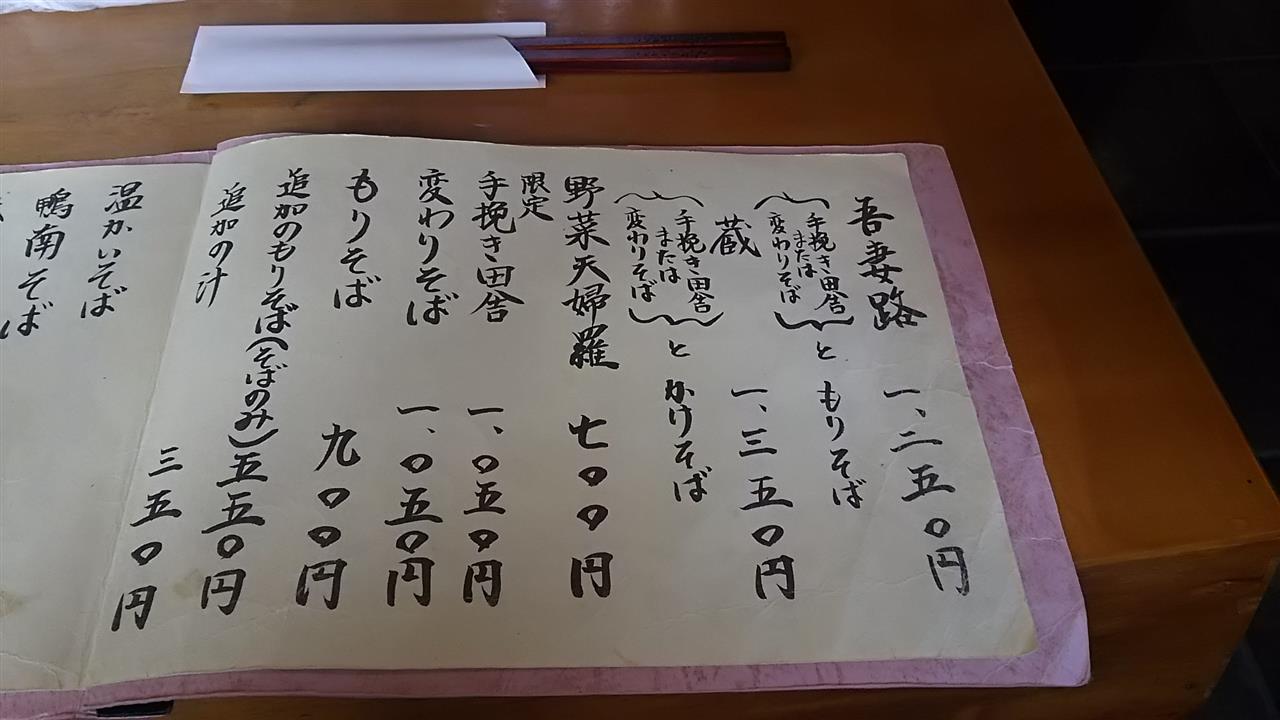 吾妻路 一、二五〇円
手挽き田舎
または
変わりそば
と もりそば
蔵 一、三五〇円
手挽き田舎
または
変わりそば
と かけそば
野菜天婦羅 七〇〇円
限定
手挽き田舎 一、〇五〇円
変わりそば 一、〇五〇円
もりそば 九〇〇円
追加のもりそば(そばのみ) 五五〇円
追加の汁 三五〇円
温かいそば
鴨南そば